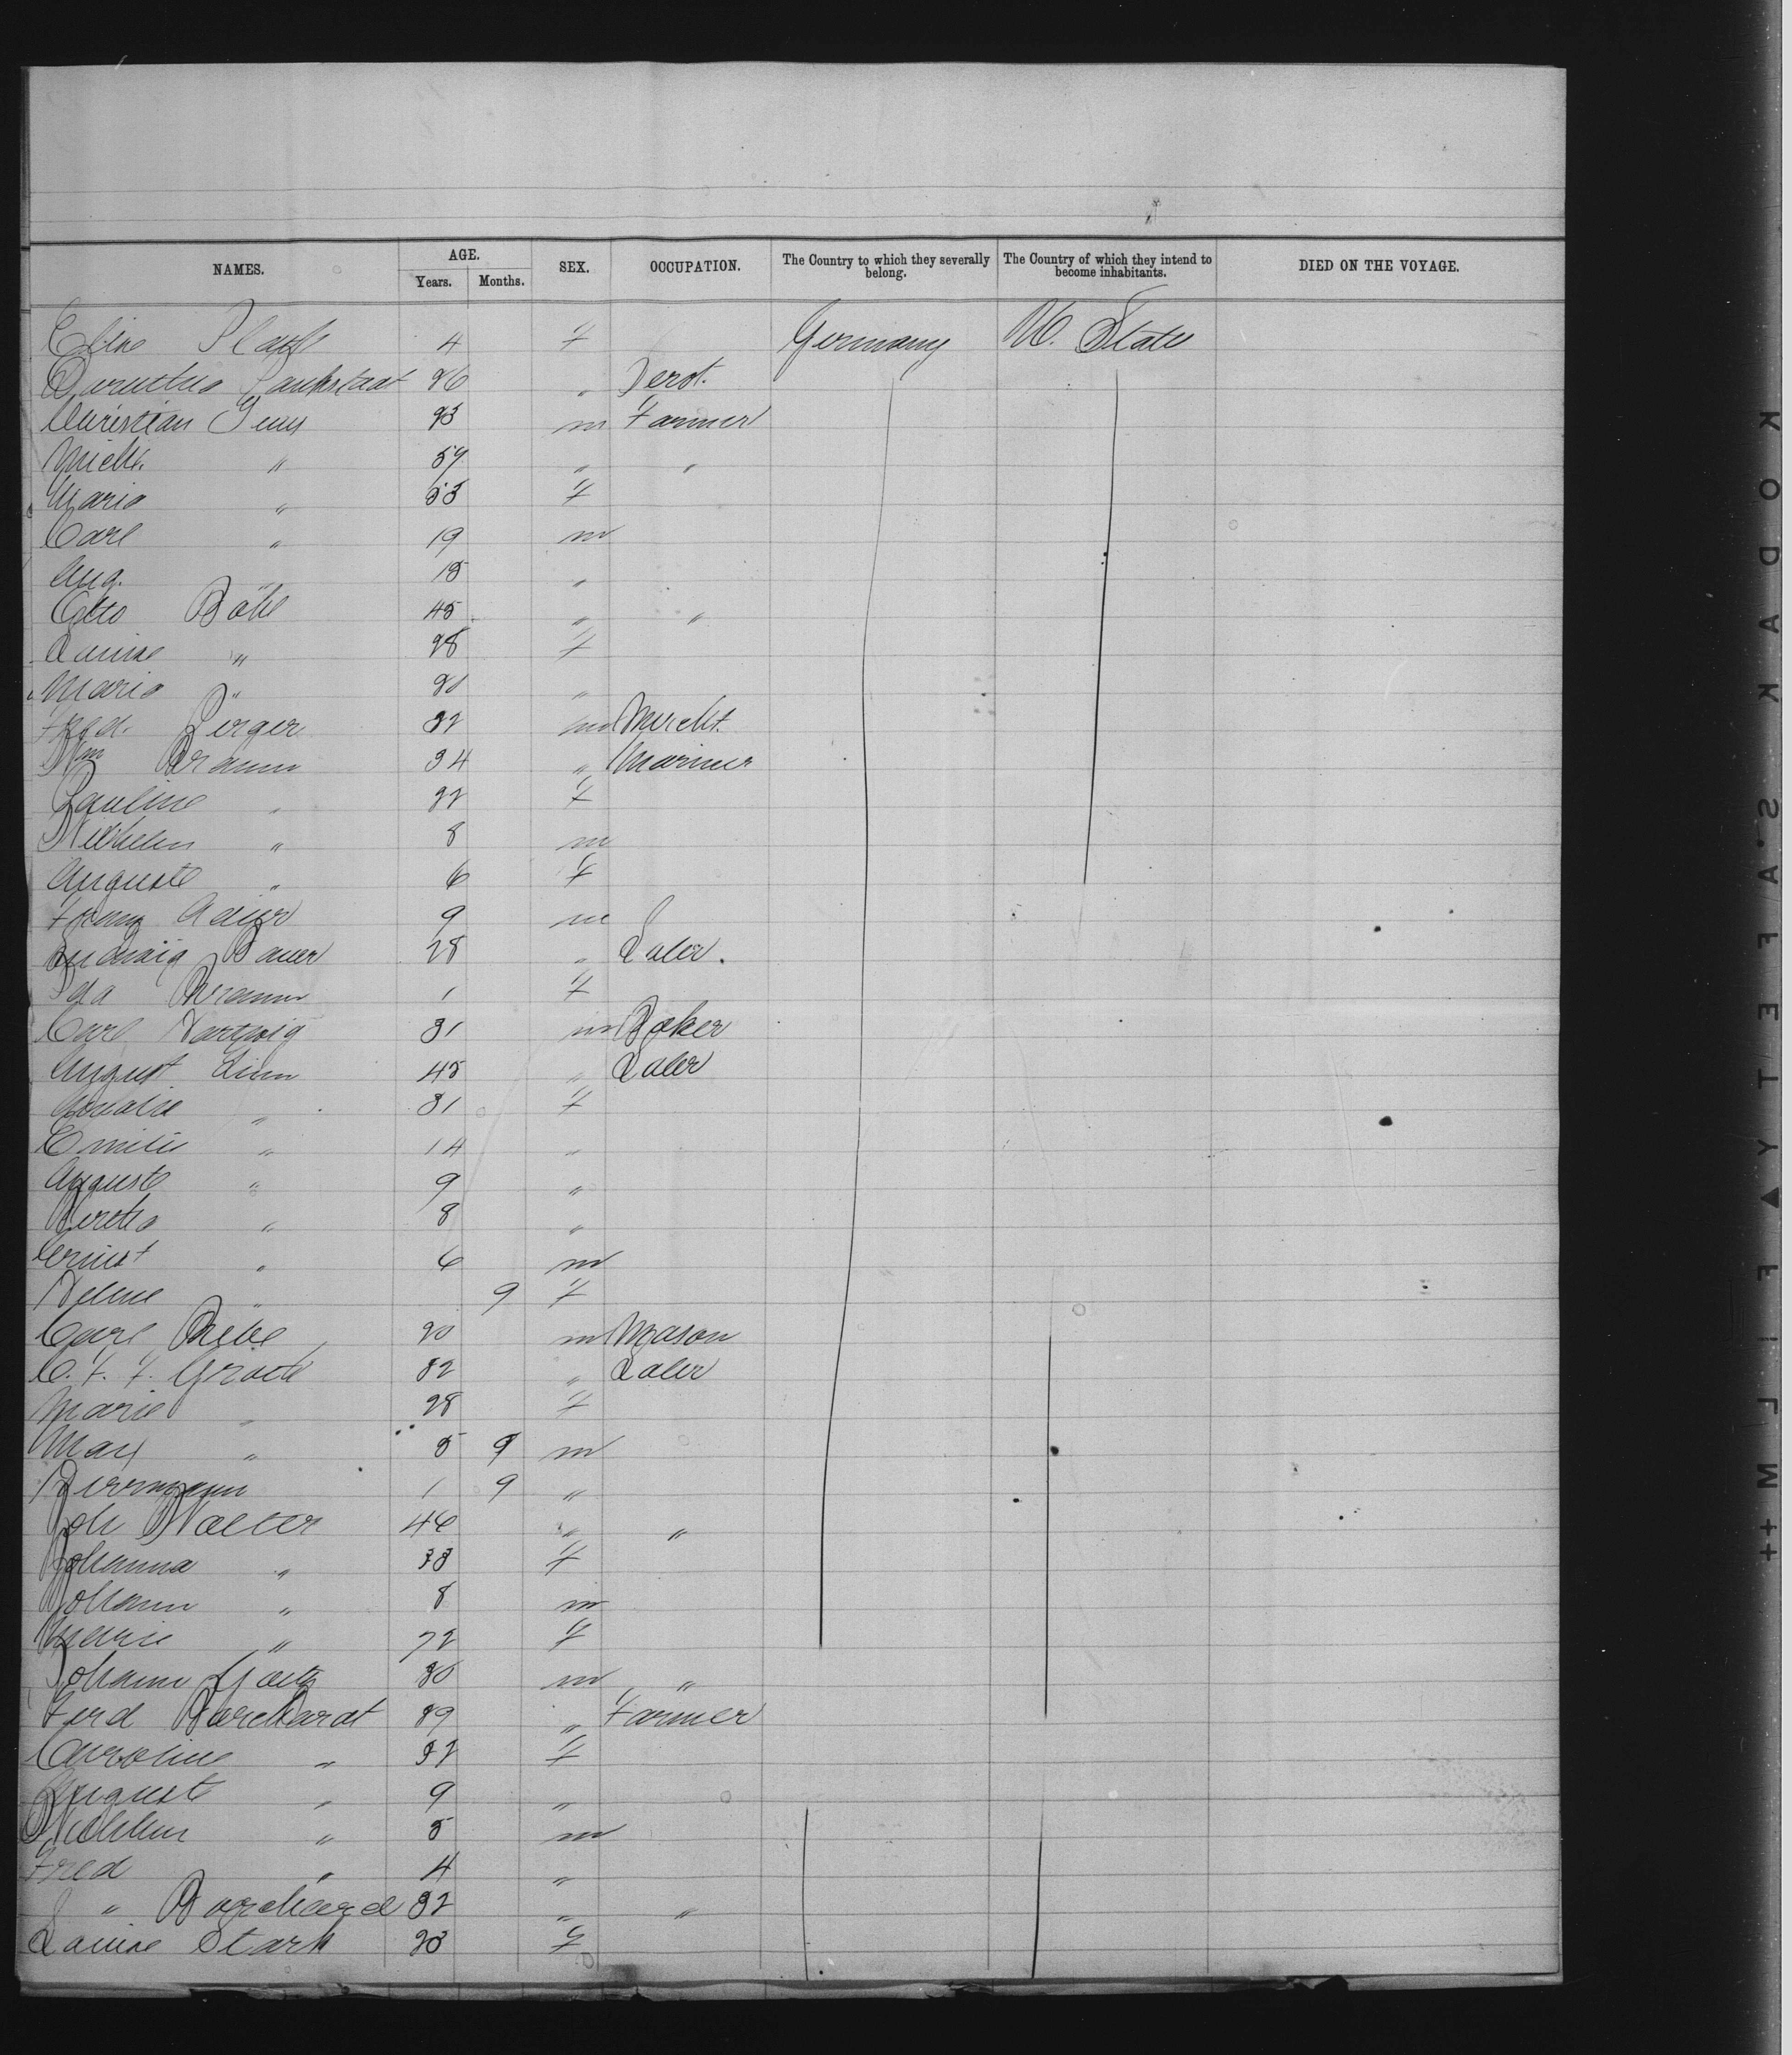 NAMES. AGE. Years. Months. SEX. OCCUPATION. The Country to which they severally belong. The Country of which they intend to become inhabitants. DIED ON THE VOYAGE.
Eline 4 f Germany U. States
Dorothea 26 " Serst.
Christian 23 m Farmer
Mich. " 59 " "
Maria " 53 f
Carl " 19 m
Aug. " 18 "
Otto Böhl 45 " "
Louise " 28 f
Maria " "
Fred. Berger 32 m Mercht.
Wm Braun 34 " Mariner
Pauline " f
Wilhelm " 8 m
Auguste " 6 f
Franz 9 m
Ludwig Bauer 28 " Labr.
Ida Braun 1 f
Carl Hartwig 31 m Baker
August 45 " Labr
Amalie " 31 f
Emilie " 14 "
Auguste " 9 "
Bertha " 8 "
Ernst " 6 m
Helene " 9 f
Carl 20 m Mason
C. F. F. Groth 32 " Labr
Marie " 28 f
Max " 5 9 m
Herrmann 1 9 "
Joh Walter 46 " "
Johanna " 38 f
Johann " 8 m
Marie " 72 f
Johann 30 m "
Ferd Borchardt 39 " Farmer
Caroline " 32 f
Auguste " 9 "
Wilhelm " 5 m
Fred " 4 "
" Borchard 32 " "
Louise Stark 23 f
KODAK S.A.FETY ▲ FILM ++